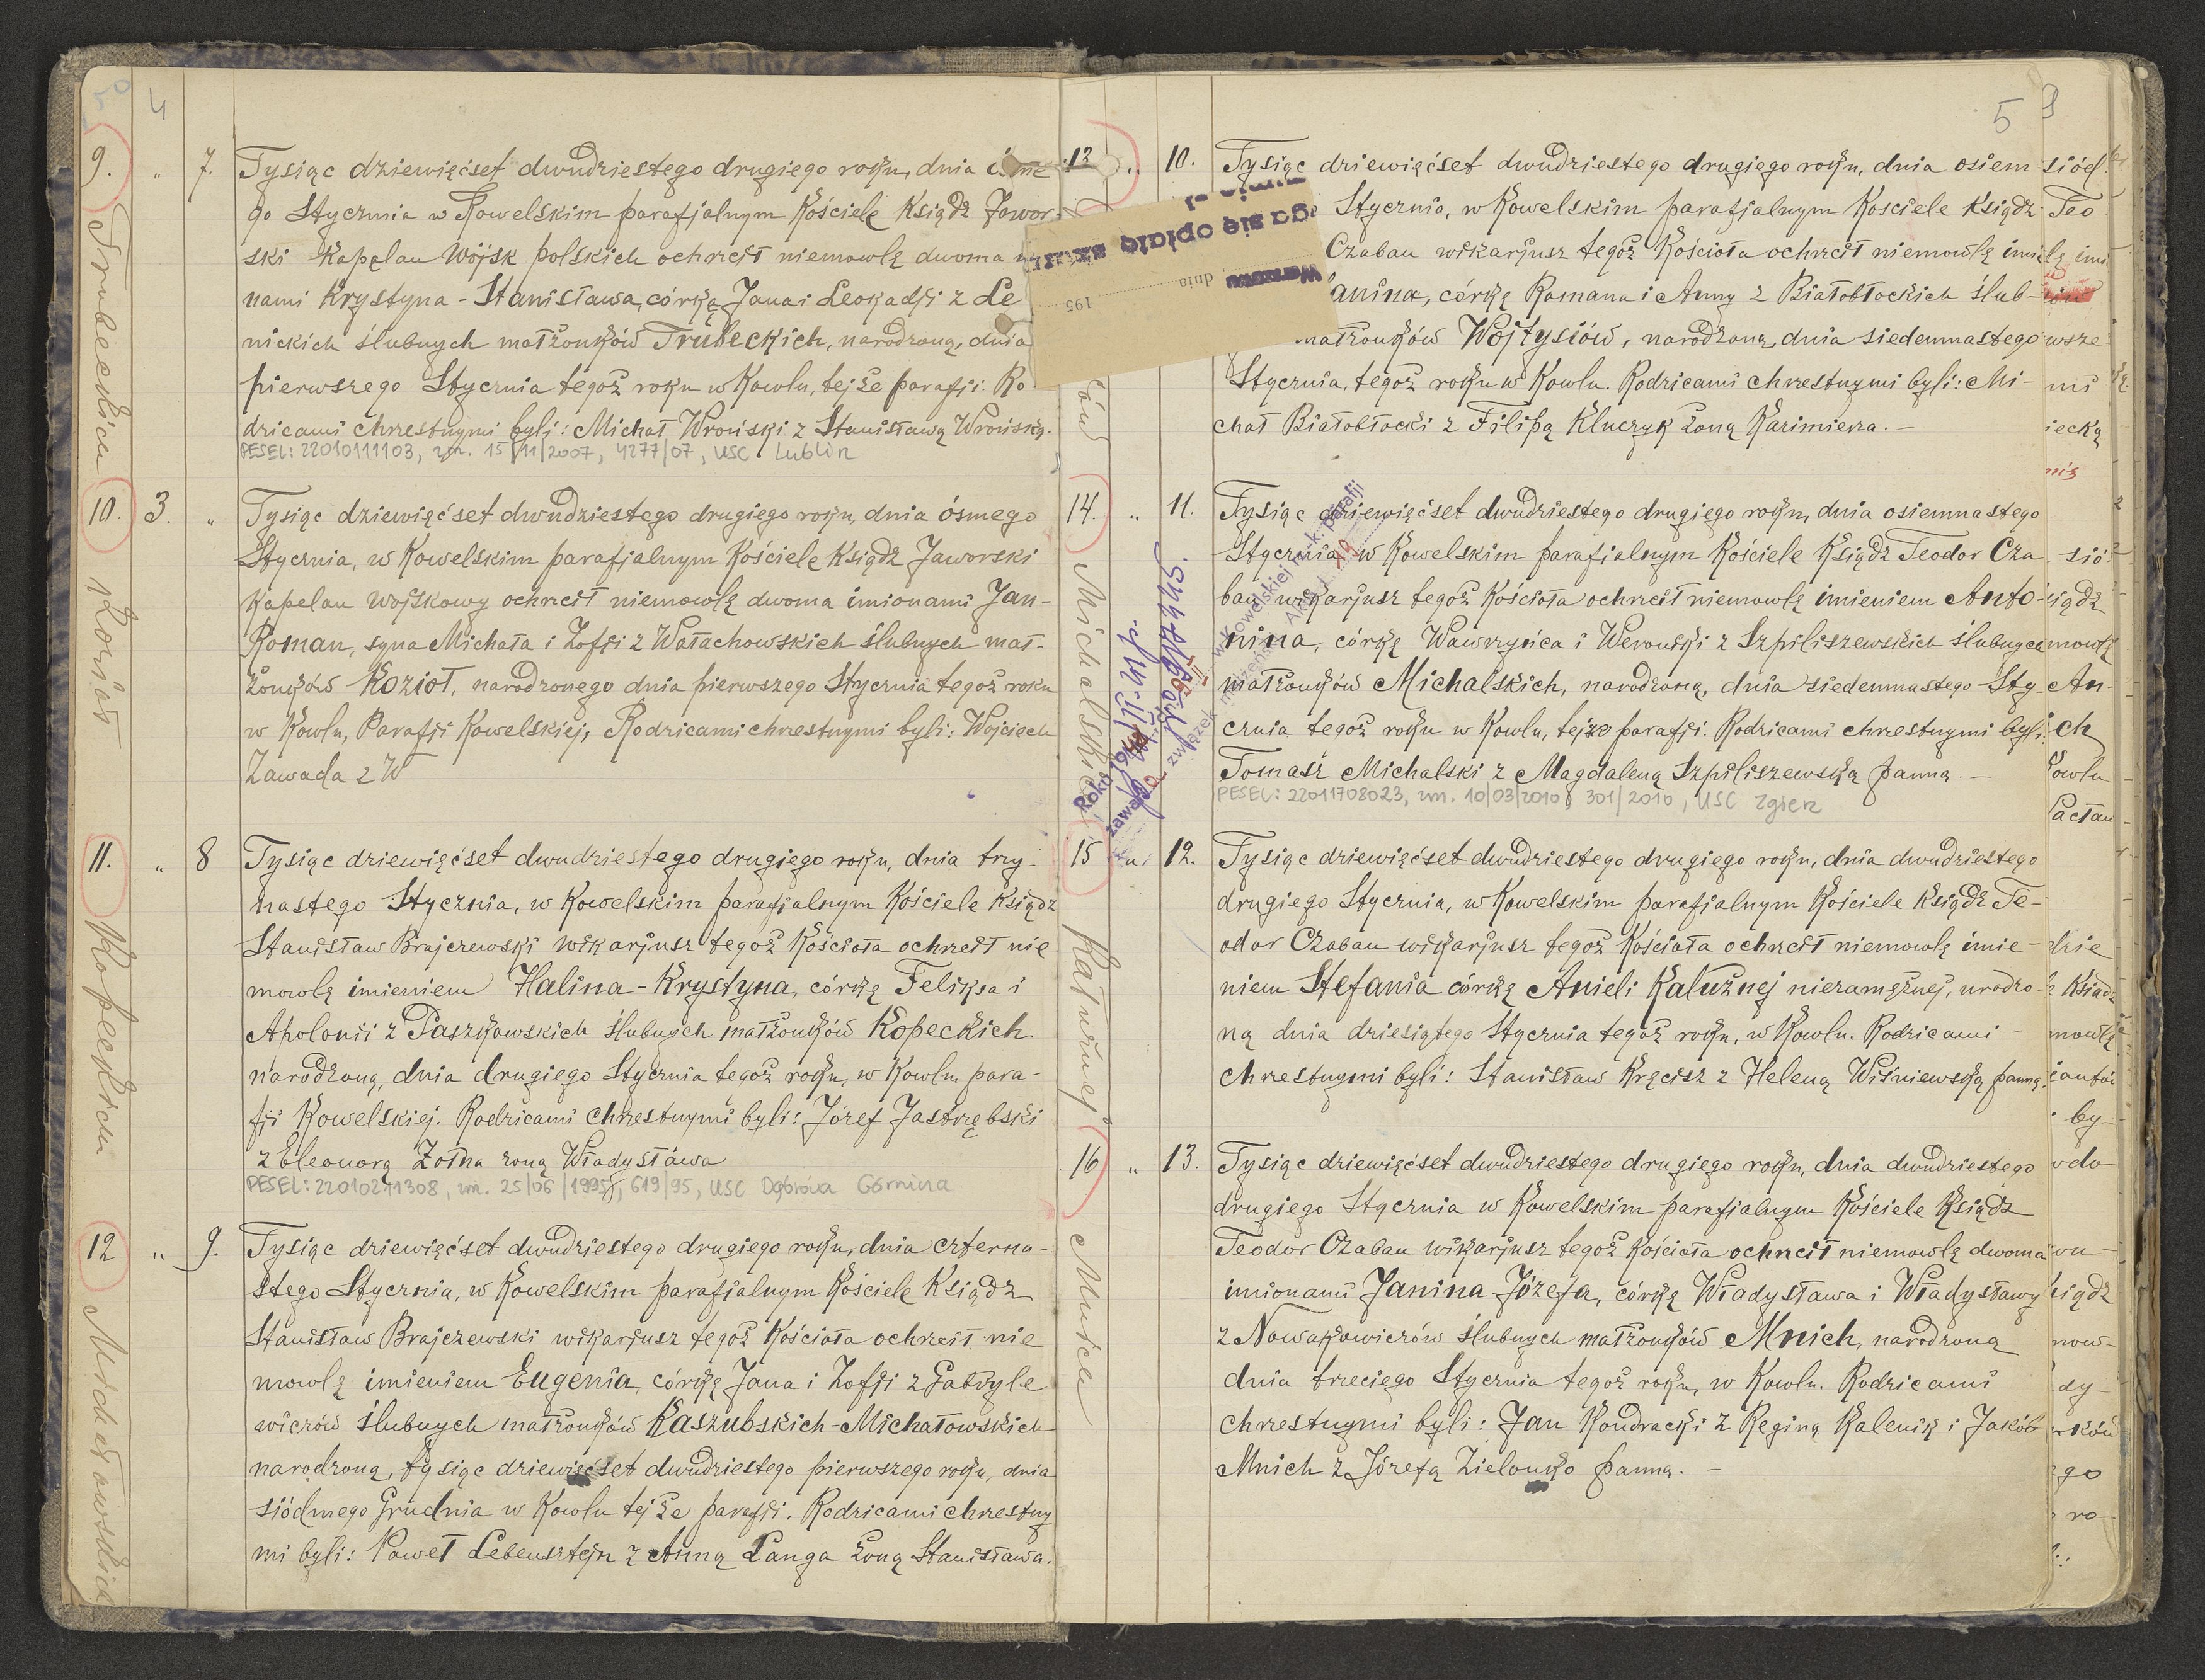 4
9. " 7.
Trubeckich
Tysiąc dziewięćset dwudziestego drugiego roku, dnia
go Stycznia w Kowelskim parafjalnym Kościele Ksiądz Jawor-
ski Kapelan Wojsk polskich ochrzcił niemowlę dwoma
nami Krystyna-Stanisława, córkę Jana i Leokadji z Le
nickich ślubnych małżonków Trubeckich, narodzoną, dnia
pierwszego Stycznia tegoż roku w Kowlu, tejże parafji. Ro
dzicami chrzestnymi byli: Michał Wroński z Stanisławą Wrońską.
PESEL: 22010111103, zm. 15/11/2007, 4277/07, USC Lublin
10. 3. "
Kozioł
Tysiąc dziewięćset dwudziestego drugiego roku, dnia ósmego
Stycznia, w Kowelskim parafjalnym Kościele Ksiądz Jaworski
Kapelan wojskowy ochrzcił niemowlę dwoma imionami Jan-
Roman, syna Michała i Zofji z Wałachowskich ślubnych mał-
żonków Kozioł, narodzonego dnia pierwszego Stycznia tegoż roku
w Kowlu, Parafji Kowelskiej, Rodzicami chrzestnymi byli: Wojciech
Zawada z W
11. " 8
Kopeckich
Tysiąc dziewięćset dwudziestego drugiego roku, dnia trzy-
nastego Stycznia, w Kowelskim parafjalnym Kościele Ksiądz
Stanisław Brajczewski wikarjusz tegoż Kościoła ochrzcił nie
mowlę imieniem Halina-Krystyna, córkę Feliksa i
Apolonii z Paszkowskich ślubnych małżonków Kopeckich
narodzoną, dnia drugiego Stycznia tegoż roku, w Kowlu para-
fji Kowelskiej. Rodzicami chrzestnymi byli: Józef Jastrzębski
z Eleonorą Żołna żoną Władysława
PESEL: 22010211308, zm. 25/06/1995, 619/95, USC Dąbrowa Górnicza
12 " 9.
Michałowskich
Tysiąc dziewięćset dwudziestego drugiego roku, dnia czterna-
stego Stycznia, w Kowelskim parafjalnym Kościele Ksiądz
Stanisław Brajczewski wikarjusz tegoż Kościoła ochrzcił nie
mowlę imieniem Eugenia, córkę Jana i Zofji z Gabryle
wiczów ślubnych małżonków Kaszubskich-Michałowskich
narodzoną, tysiąc dziewięćset dwudziestego pierwszego roku, dnia
siódmego Grudnia w Kowlu tejże parafji. Rodzicami chrzestny
mi byli: Paweł Lebensztejn z Anną Langa żoną Stanisława.
5
13 " 10.
Tysiąc dziewięćset dwudziestego drugiego roku, dnia osiem
Stycznia, w Kowelskim parafjalnym Kościele Ksiądz
Czaban wikarjusz tegoż Kościoła ochrzcił niemowlę imie
anina, córkę Romana i Anny z Białobłockich ślub-
małżonków Wojtysiów, narodzoną, dnia siedemnastego
Stycznia, tegoż roku w Kowlu. Rodzicami chrzestnymi byli: Mi-
chał Białobłocki z Filipą Kluczyk żoną Kazimierza.-
ga się opłatę
Warszawa dnia 195
14. " 11.
Michalskich
Tysiąc dziewięćset dwudziestego drugiego roku, dnia osiemnastego
Stycznia, w Kowelskim parafjalnym Kościele Ksiądz Teodor Cza
ban wikarjusz tegoż Kościoła ochrzcił niemowlę imieniem Anto-
nina, córkę Wawrzyńca i Weroniki z Szpiliszewskich ślubnych
małżonków Michalskich, narodzoną, dnia siedemnastego Sty-
cznia tegoż roku w Kowlu, tejże parafji. Rodzicami chrzestnymi byli:
Tomasz Michalski z Magdaleną Szpiliszewską panną.-
PESEL: 22011708023, zm. 10/03/2010, 301/2010, USC Zgierz
w Kowelskiej rz.-k. parafji
15 " 12.
Kałużnej
Tysiąc dziewięćset dwudziestego drugiego roku, dnia dwudziestego
drugiego Stycznia, w Kowelskim parafjalnym Kościele Ksiądz Te-
odor Czaban wikarjusz tegoż Kościoła ochrzcił niemowlę imie-
niem Stefania córkę Anieli Kałużnej niezamężnej, urodzo-
ną dnia dziesiątego Stycznia tegoż roku, w Kowlu. Rodzicami
chrzestnymi byli: Stanisław Kręcisz z Heleną Wiśniewską panną.
16 " 13.
Mnicha
Tysiąc dziewięćset dwudziestego drugiego roku, dnia dwudziestego
drugiego Stycznia w Kowelskim parafjalnym Kościele Ksiądz
Teodor Czaban wikarjusz tegoż Kościoła ochrzcił niemowlę dwoma
imionami Janina Józefa, córkę Władysława i Władysławy
z Nowakowiczów ślubnych małżonków Mnich, narodzoną
dnia trzeciego Stycznia tegoż roku, w Kowlu. Rodzicami
chrzestnymi byli: Jan Kondracki z Reginą Kalenik i Jakób
Mnich z Józefą Zielonko panną.-